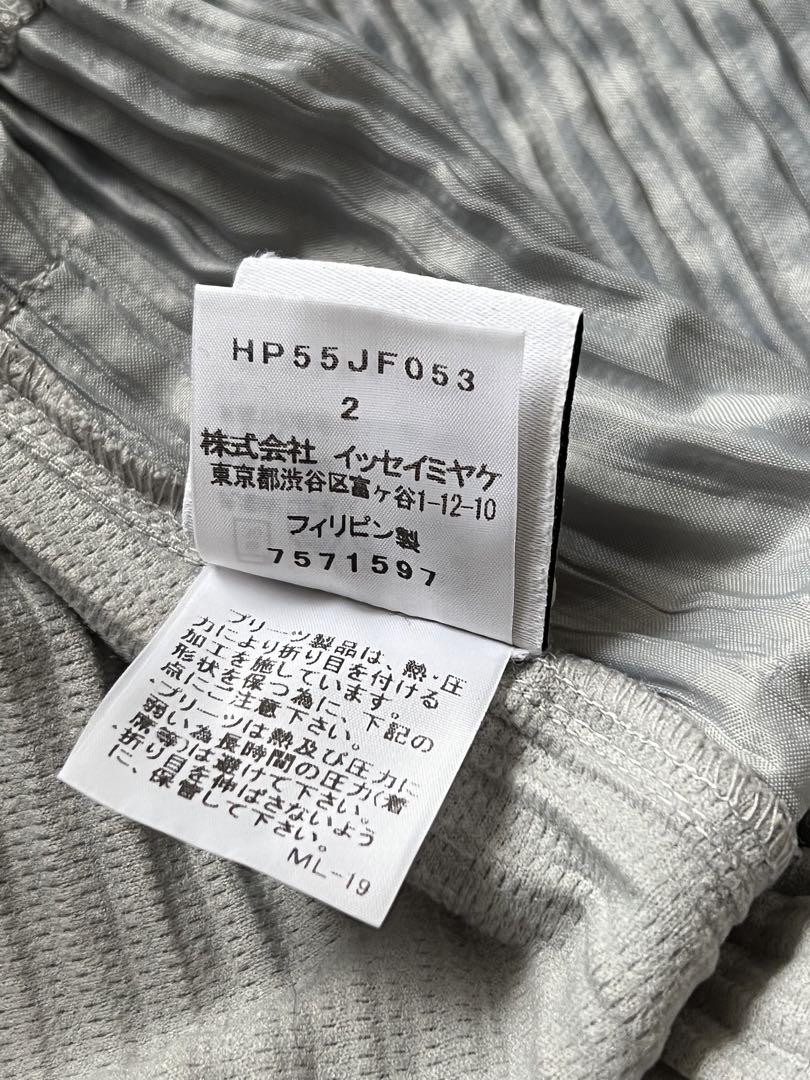 HP55JF053
2
株式会社 イッセイミヤケ
東京都渋谷区富ヶ谷1-12-10
フィリピン製
7571597
プリーツ製品は、熱・圧
力により折り目を付ける
加工を施しています。
形状を保つ為に、下記の
点にご注意下さい。
・プリーツは熱及び圧力に
弱い為長時間の圧力(着
席等)は避けて下さい。
・折り目を伸ばさないよう
に、保管して下さい。
ML-19